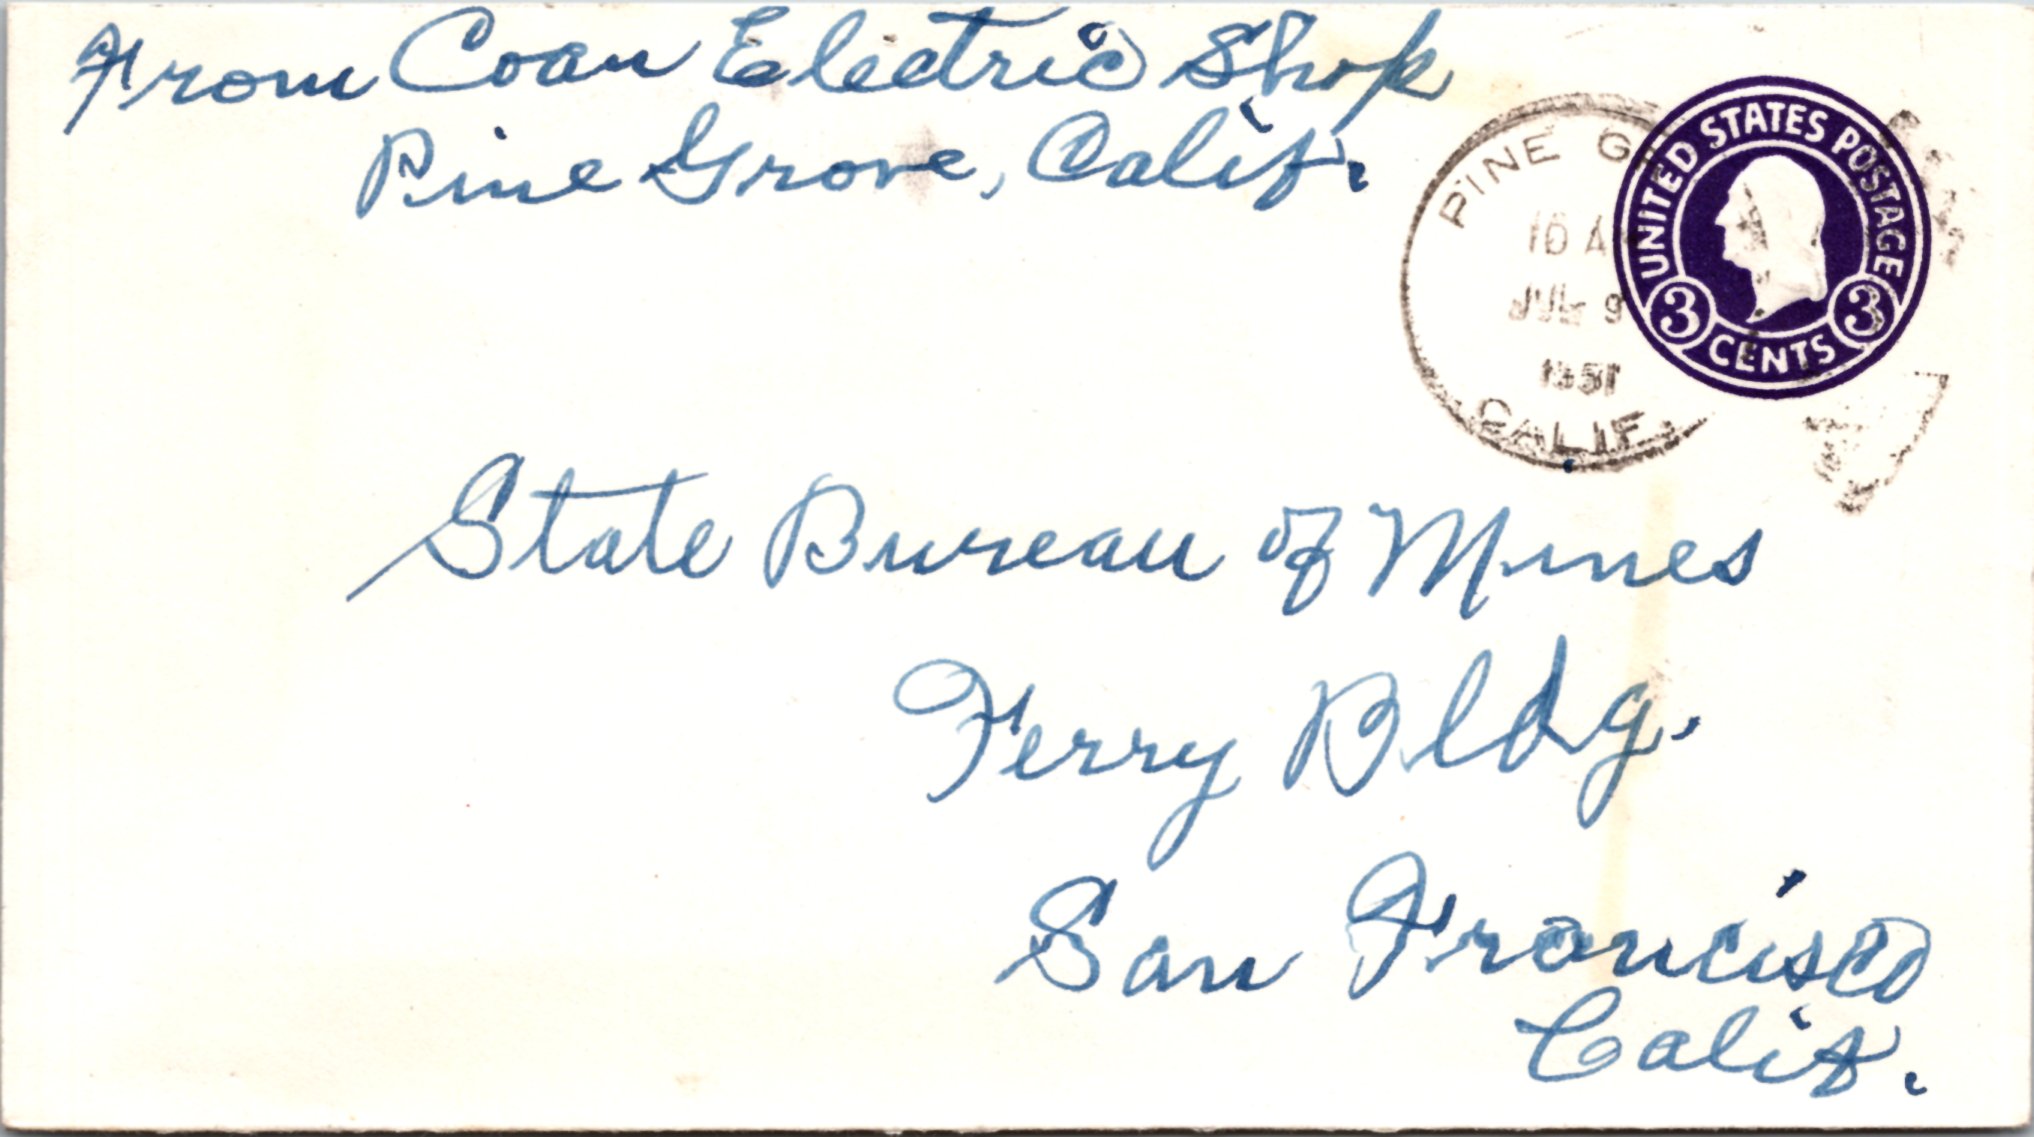 From Coan Electric Shop
Pine Grove, Calif.
PINE G
10 A
JUL 9
1951
CALIF.
UNITED STATES POSTAGE
3 CENTS 3
State Bureau of Mines
Ferry Bldg.
San Francisco
Calif.